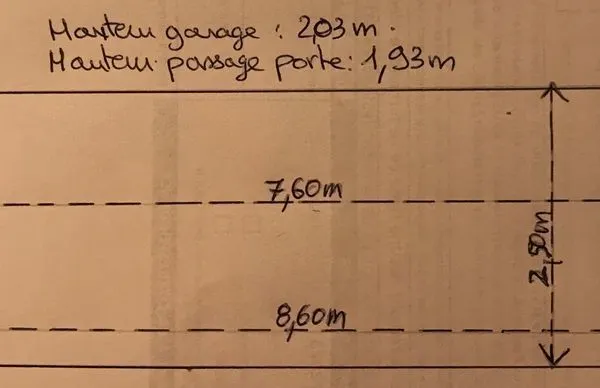 Hauteur garage : 2,03 m.
Hauteur passage porte : 1,93 m
7,60 m
2,50 m
8,60 m